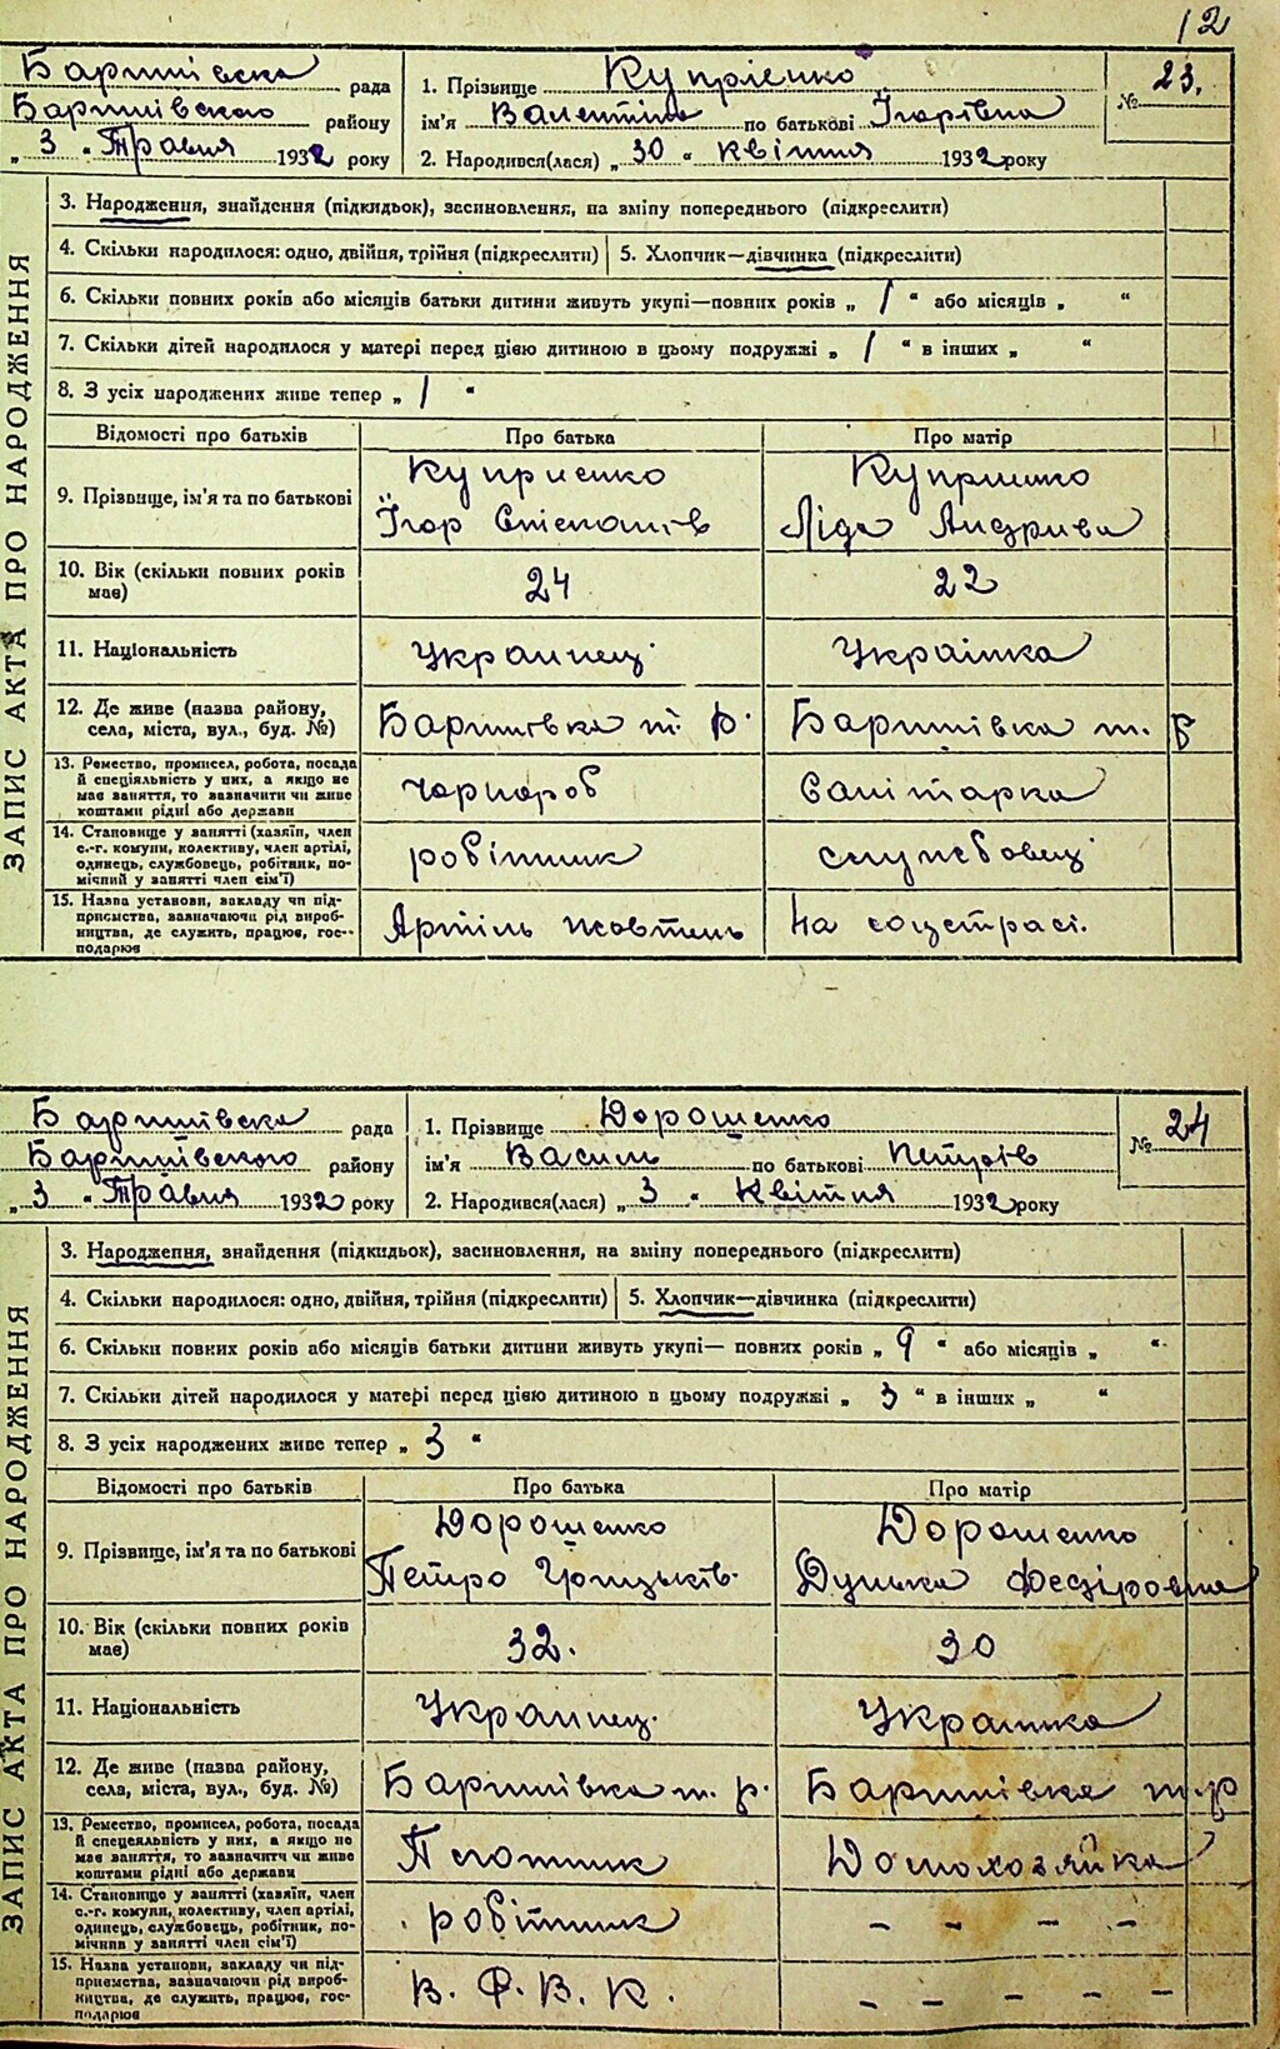 12
Баришівска рада
Баришівского району
„ 3 “ Травня 1932 року
1. Прізвище Купрієнко
ім'я Валентіна по батькові Ігорівна
2. Народився(лася) „ 30 “ квітня 1932 року
№ 23.
ЗАПИС АКТА ПРО НАРОДЖЕННЯ
3. Народження, знайдення (підкидьок), засиновлення, на зміну попереднього (підкреслити)
4. Скільки народилося: одно, двійня, трійня (підкреслити)
5. Хлопчик—дівчинка (підкреслити)
6. Скільки повних років або місяців батьки дитини живуть укупі—повних років „ 1 “ або місяців „ “
7. Скільки дітей народилося у матері перед цією дитиною в цьому подружжі „ 1 “ в інших „ “
8. З усіх народжених живе тепер „ 1 “
Відомості про батьків
Про батька
Про матір
9. Прізвище, ім'я та по батькові
Куприенко
Ігор Степанів
Куприенко
Ліда Андрива
10. Вік (скільки повних років
має)
24
22
11. Національність
Украинец
Українка
12. Де живе (назва району,
села, міста, вул., буд. №)
Баришівка т. Б.
Баришівка т. Б
13. Ремество, промисел, робота, посада
й спеціяльність у них, а якщо не
має заняття, то зазначити чи живе
коштами рідні або держави
чорнороб
Санітарка
14. Становище у занятті (хазяїн, член
с.-г. комуни, колективу, член артілі,
одинець, службовець, робітник, по-
мічний у занятті член сім'ї)
робітник
служебовец
15. Назва установи, закладу чи під-
приємства, зазначаючи рід вироб-
ництва, де служить, працює, гос-
подарює
Артіль жовтень
на соцстрасі.
Баришівска рада
Баришівского району
„ 3 “ Травня 1932 року
1. Прізвище Дорошенко
ім'я Василь по батькові Петрів
2. Народився(лася) „ 3 “ Квітня 1932 року
№ 24
ЗАПИС АКТА ПРО НАРОДЖЕННЯ
3. Народження, знайдення (підкидьок), засиновлення, на зміну попереднього (підкреслити)
4. Скільки народилося: одно, двійня, трійня (підкреслити)
5. Хлопчик—дівчинка (підкреслити)
6. Скільки повних років або місяців батьки дитини живуть укупі— повних років „ 9 “ або місяців „ “
7. Скільки дітей народилося у матері перед цією дитиною в цьому подружжі „ 3 “ в інших „ “
8. З усіх народжених живе тепер „ 3 “
Відомості про батьків
Про батька
Про матір
9. Прізвище, ім'я та по батькові
Дорошенко
Петро Грицьків
Дорошенко
Дунька Федіровна
10. Вік (скільки повних років
має)
32.
30
11. Національність
Украинец.
Украинка
12. Де живе (назва району,
села, міста, вул., буд. №)
Баришівка т. р.
Баришівка т. р
13. Ремество, промисел, робота, посада
й спецеяльність у них, а якщо не
має заняття, то зазначити чи живе
коштами рідні або держави
Плотник
Домохозяйка
14. Становищо у занятті (хазяїн, член
с.-г. комуни, колективу, член артілі,
одинець, службовець, робітник, по-
мічний у занятті член сім'ї)
робітник
– – – –
15. Назва установи, закладу чи під-
приємства, зазначаючи рід вироб-
ництва, де служить, працює, гос-
подарює
В. Ф. В. К.
– – – – – –